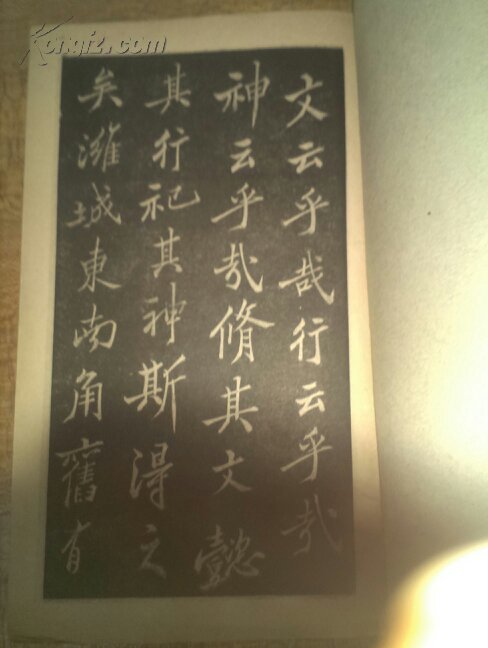 文云乎哉行云乎哉
神云乎哉脩其文懿
其行祀其神斯得之
矣濰城東南角舊有
Kongfz.com